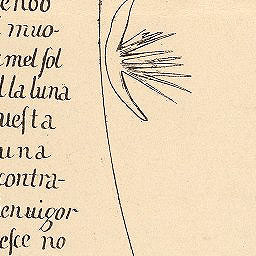 endo
i muo-
mel sol
l la luna
uesta
una
contra-
enuigor
esce no